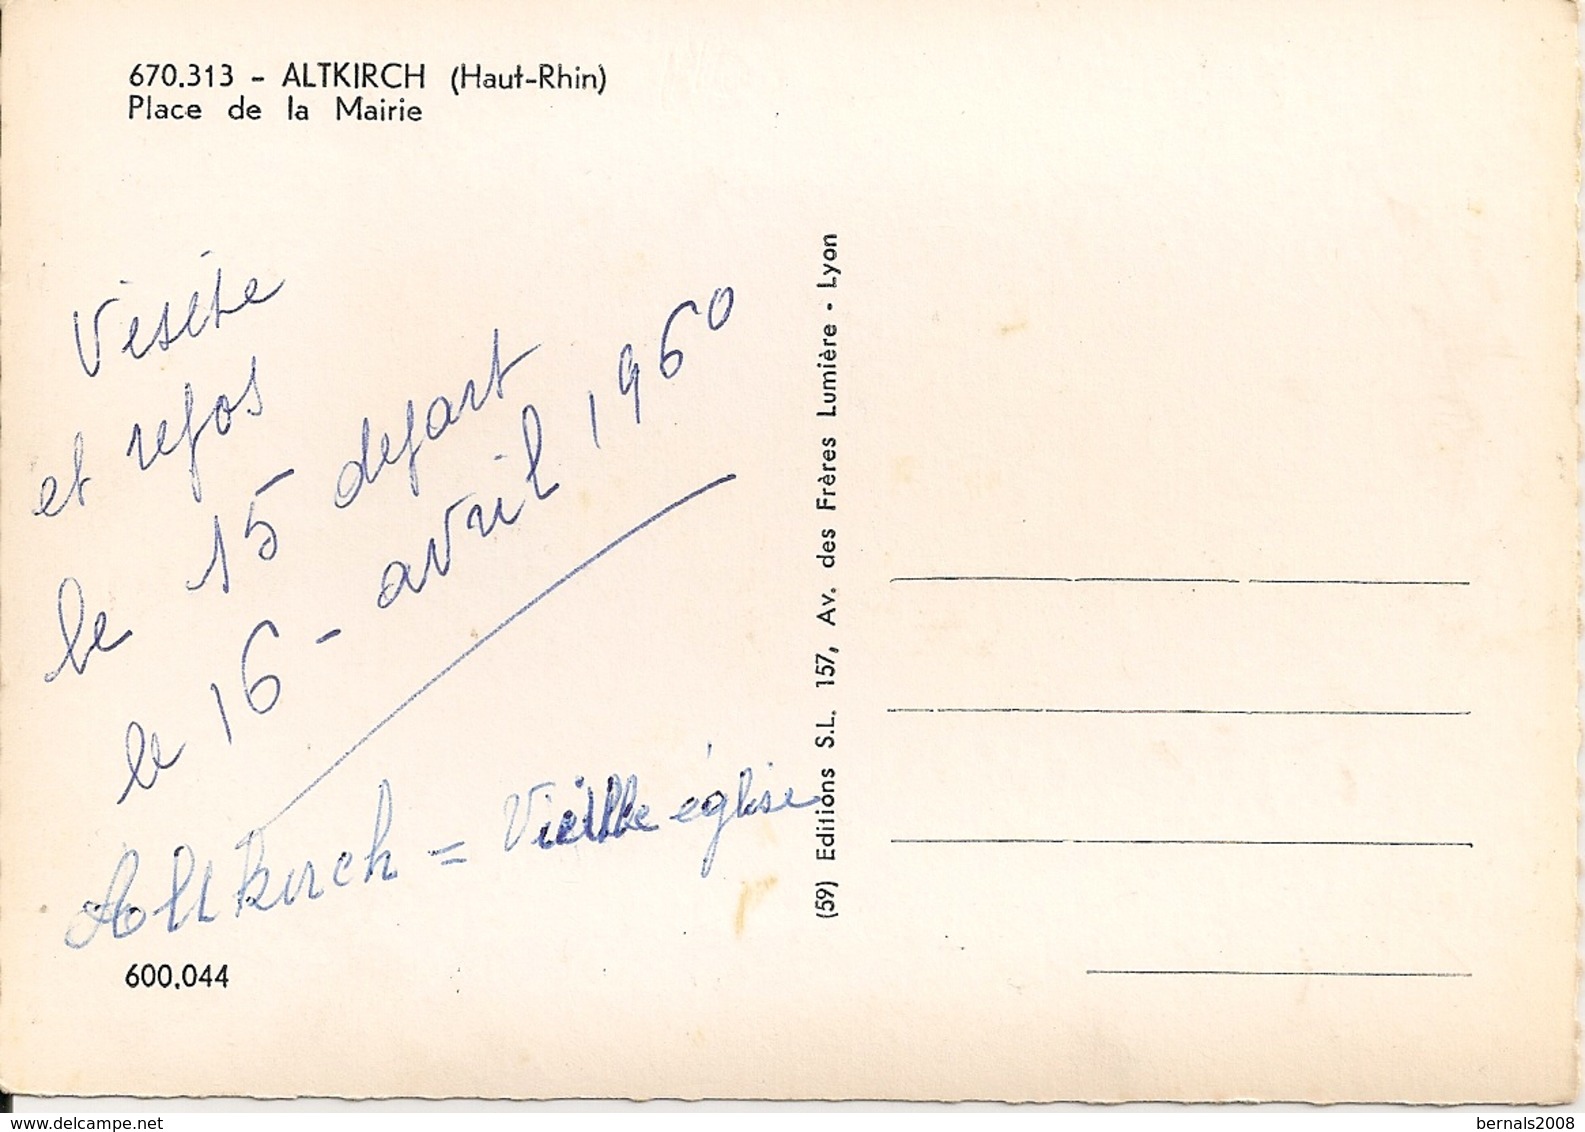 670.313 - ALTKIRCH (Haut-Rhin)
Place de la Mairie
Visite
et repos
le 15 depart
le 16 - avril 1960
Altkirch = Vieille église
600.044
(59) Editions S.L. 157, Av. des Frères Lumière - Lyon
delcampe.net
bernals2008